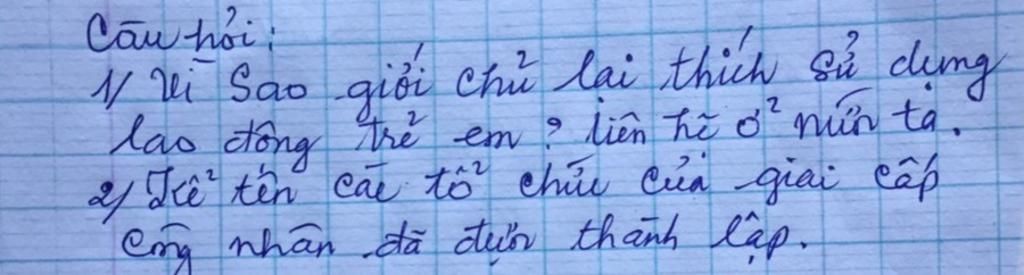 Câu hỏi:
1/ Vì sao giới chủ lại thích sử dụng
lao động trẻ em? liên hệ ở nước ta.
2/ Kể tên các tổ chức của giai cấp
công nhân đã được thành lập.